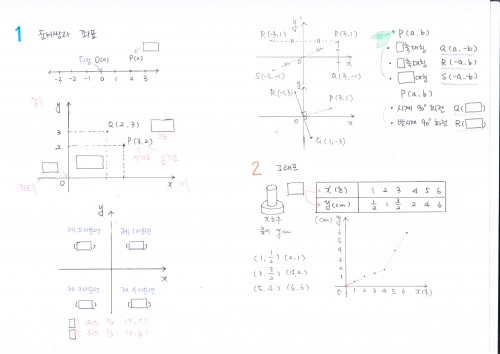 1
순서쌍과 좌표
원점 O(0) P(a)
-3 -2 -1 0 1 2 3
y
3
2
Q(2,3)
P(3,2)
0
x
y
제2사분면
제1사분면
x
제3사분면
제4사분면
y
R(-3,1)
P(3,1)
S(-3,-1)
Q(3,-1)
x
y
P(3,1)
O
x
Q(1,-3)
P(a,b)
축대칭 Q(a,-b)
축대칭 R(-a,b)
대칭 S(-a,-b)
P(a,b)
시계 90° 회전 Q( )
반시계 90° 회전 R( )
2
그래프
x(초) 1 2 3 4 5 6
y(cm) 1/2 1 3/2 2 4 6
x초 후
y cm
(1,1/2) (2,1)
(3,3/2) (4,2)
(5,4) (6,6)
(cm) y
6
5
4
3
2
1
0
1 2 3 4 5 6 x(초)